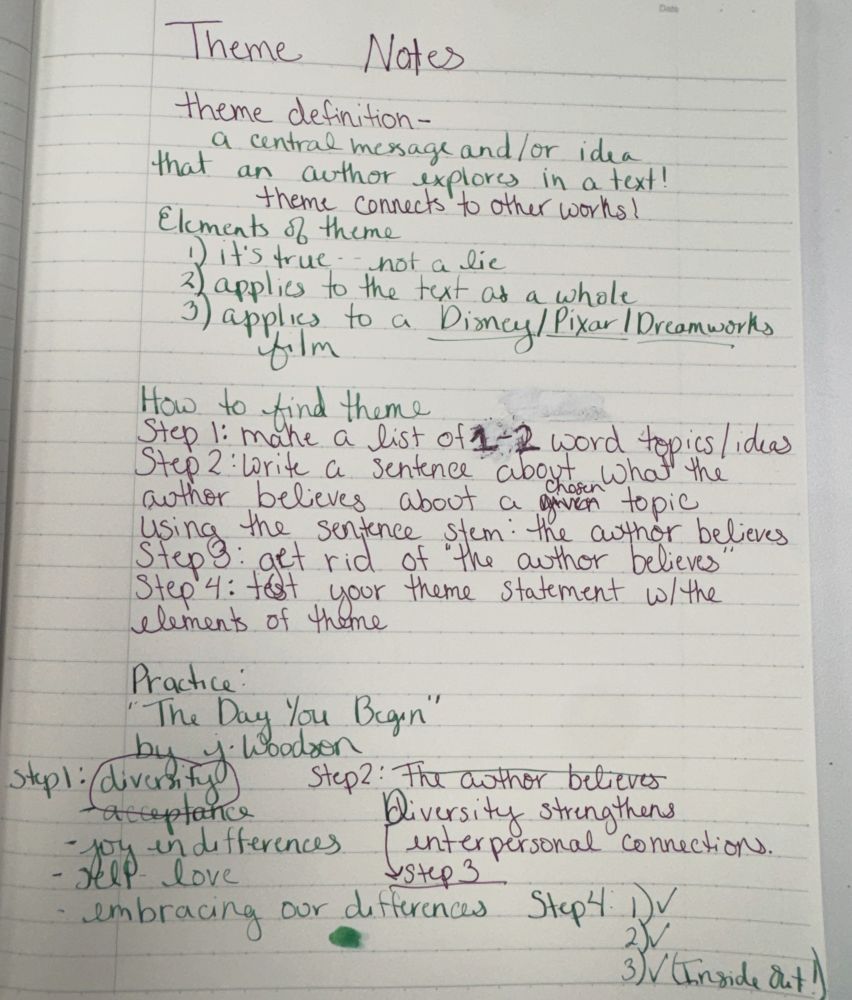 Date
Theme Notes
theme definition-
a central message and/or idea
that an author explores in a text!
theme connects to other works!
Elements of theme
1) it's true -- not a lie
2) applies to the text as a whole
3) applies to a Disney/Pixar/Dreamworks
film
How to find theme
Step 1: make a list of 1-2 word topics/ideas
Step 2: Write a sentence about what the
author believes about a given chosen topic
using the sentence stem: the author believes
Step 3: get rid of "the author believes"
Step 4: test your theme statement w/the
elements of theme
Practice:
"The Day You Begin"
by J. Woodson
Step 1: diversity Step 2: The author believes
- acceptance Diversity strengthens
- joy in differences interpersonal connections.
- self-love Step 3
- embracing our differences Step 4: 1) ✓
2) ✓
3) ✓ (Inside Out!)